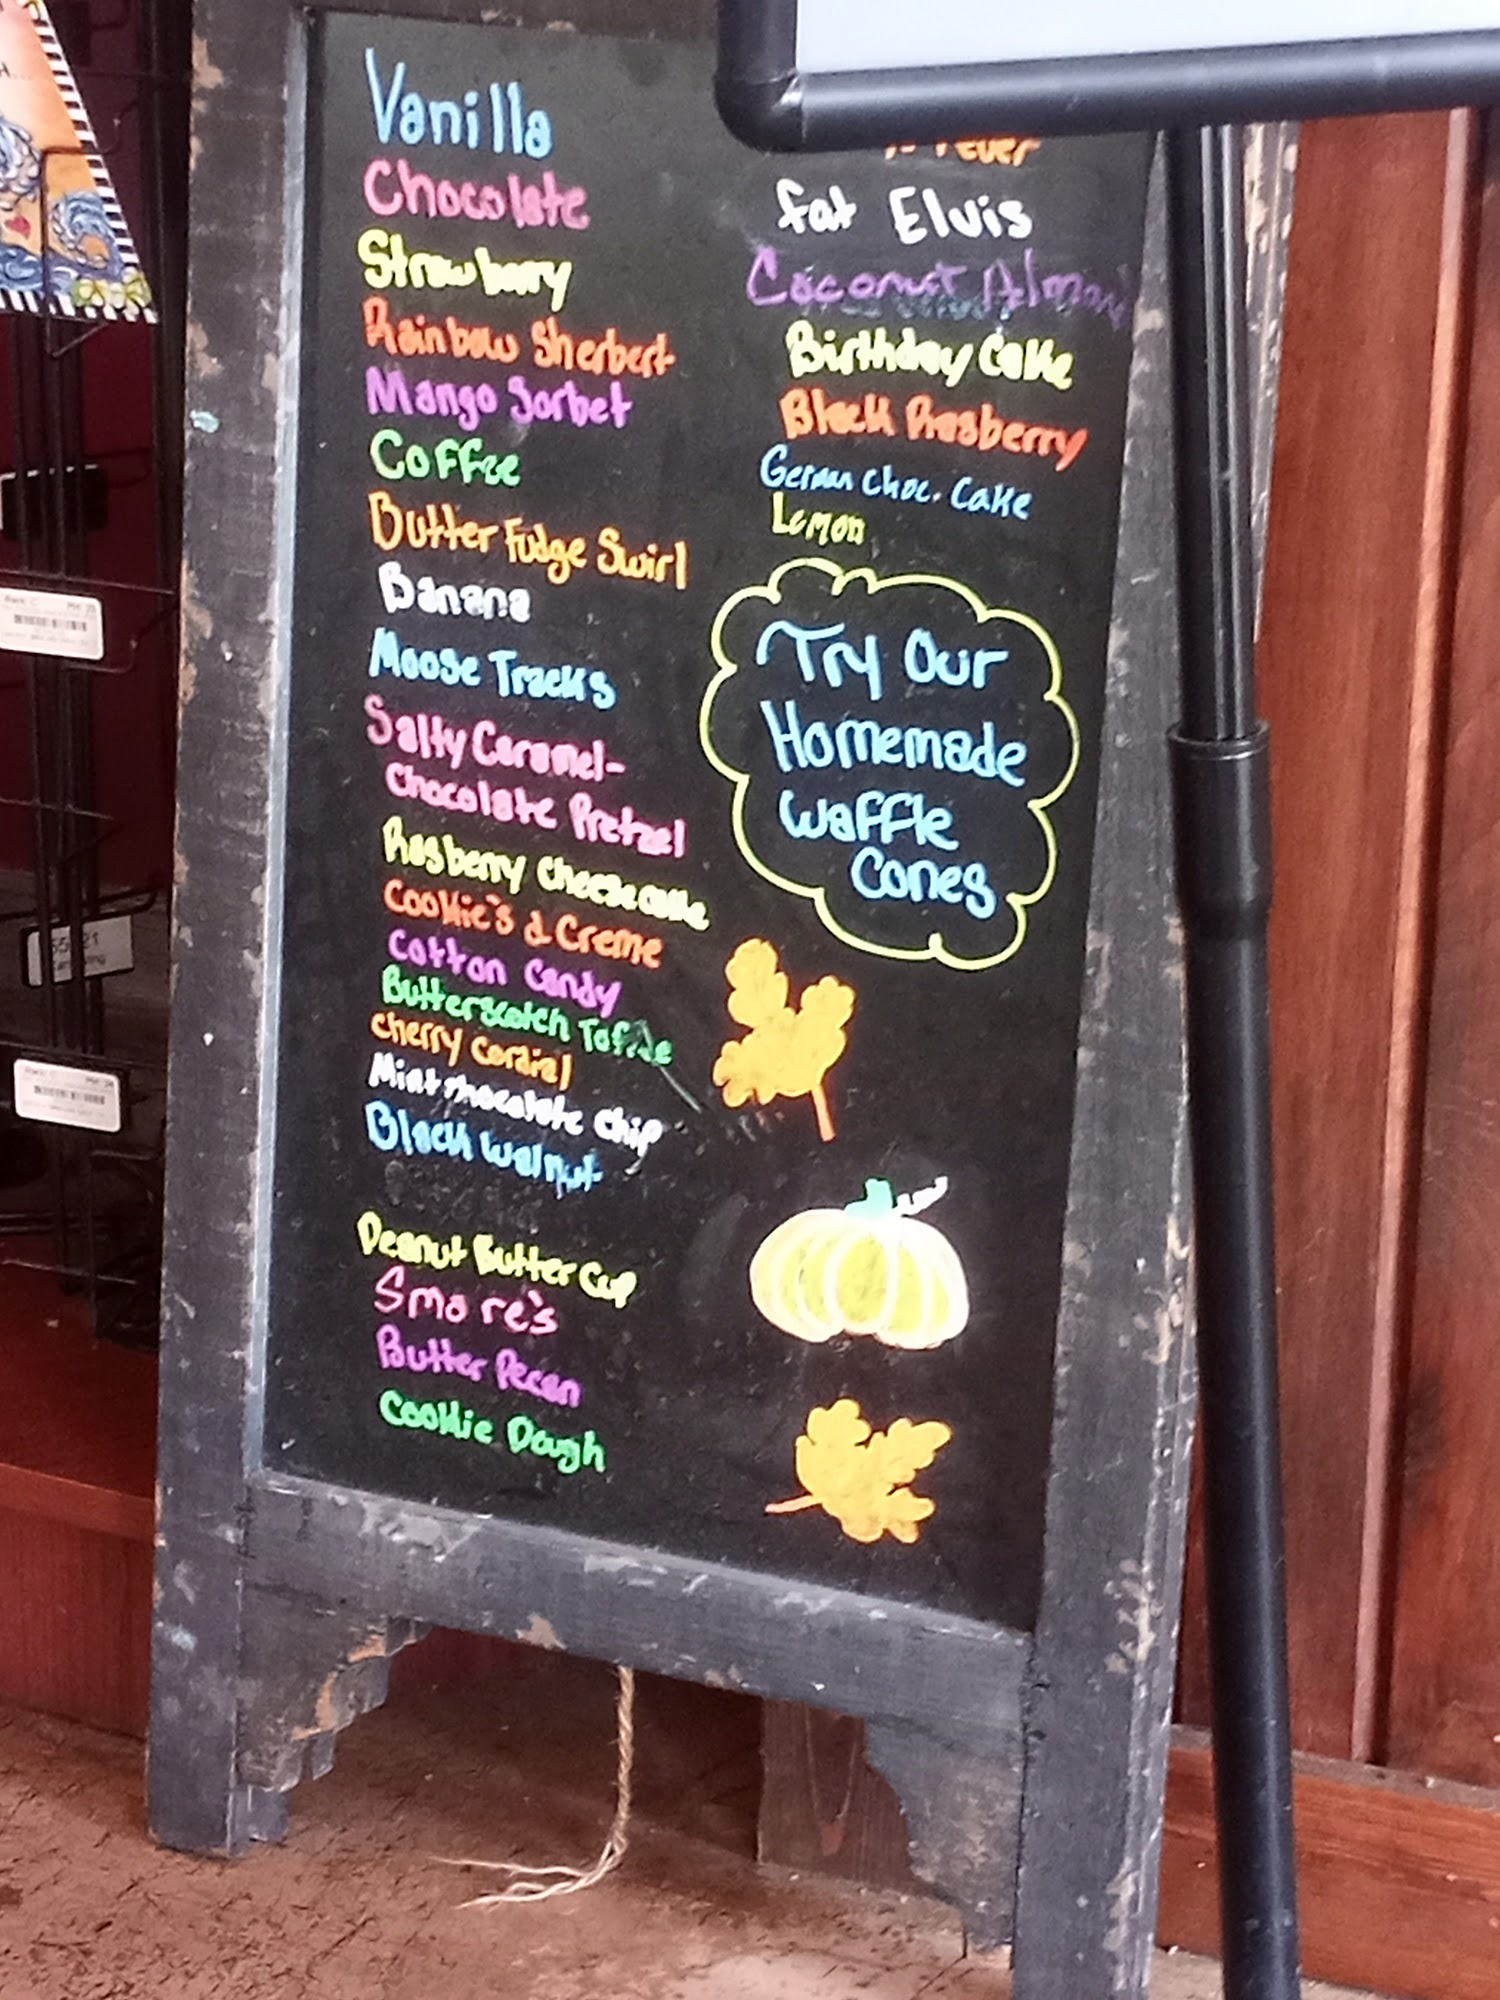 Vanilla
Chocolate
Strawberry
Rainbow Sherbert
Mango Sorbet
Coffee
Butter Fudge Swirl
Banana
Moose Tracks
Salty Caramel-
Chocolate Pretzel
Rasberry Cheesecake
Cookie's & Creme
Cotton Candy
Butterscotch Toffee
Cherry Cordial
Mint Chocolate Chip
Black Walnut
Peanut Butter Cup
Smore's
Butter Pecan
Cookie Dough
Fever
Fat Elvis
Coconut Almond
Birthday Cake
Black Rasberry
German Choc. Cake
Lemon
Try Our
Homemade
Waffle
Cones